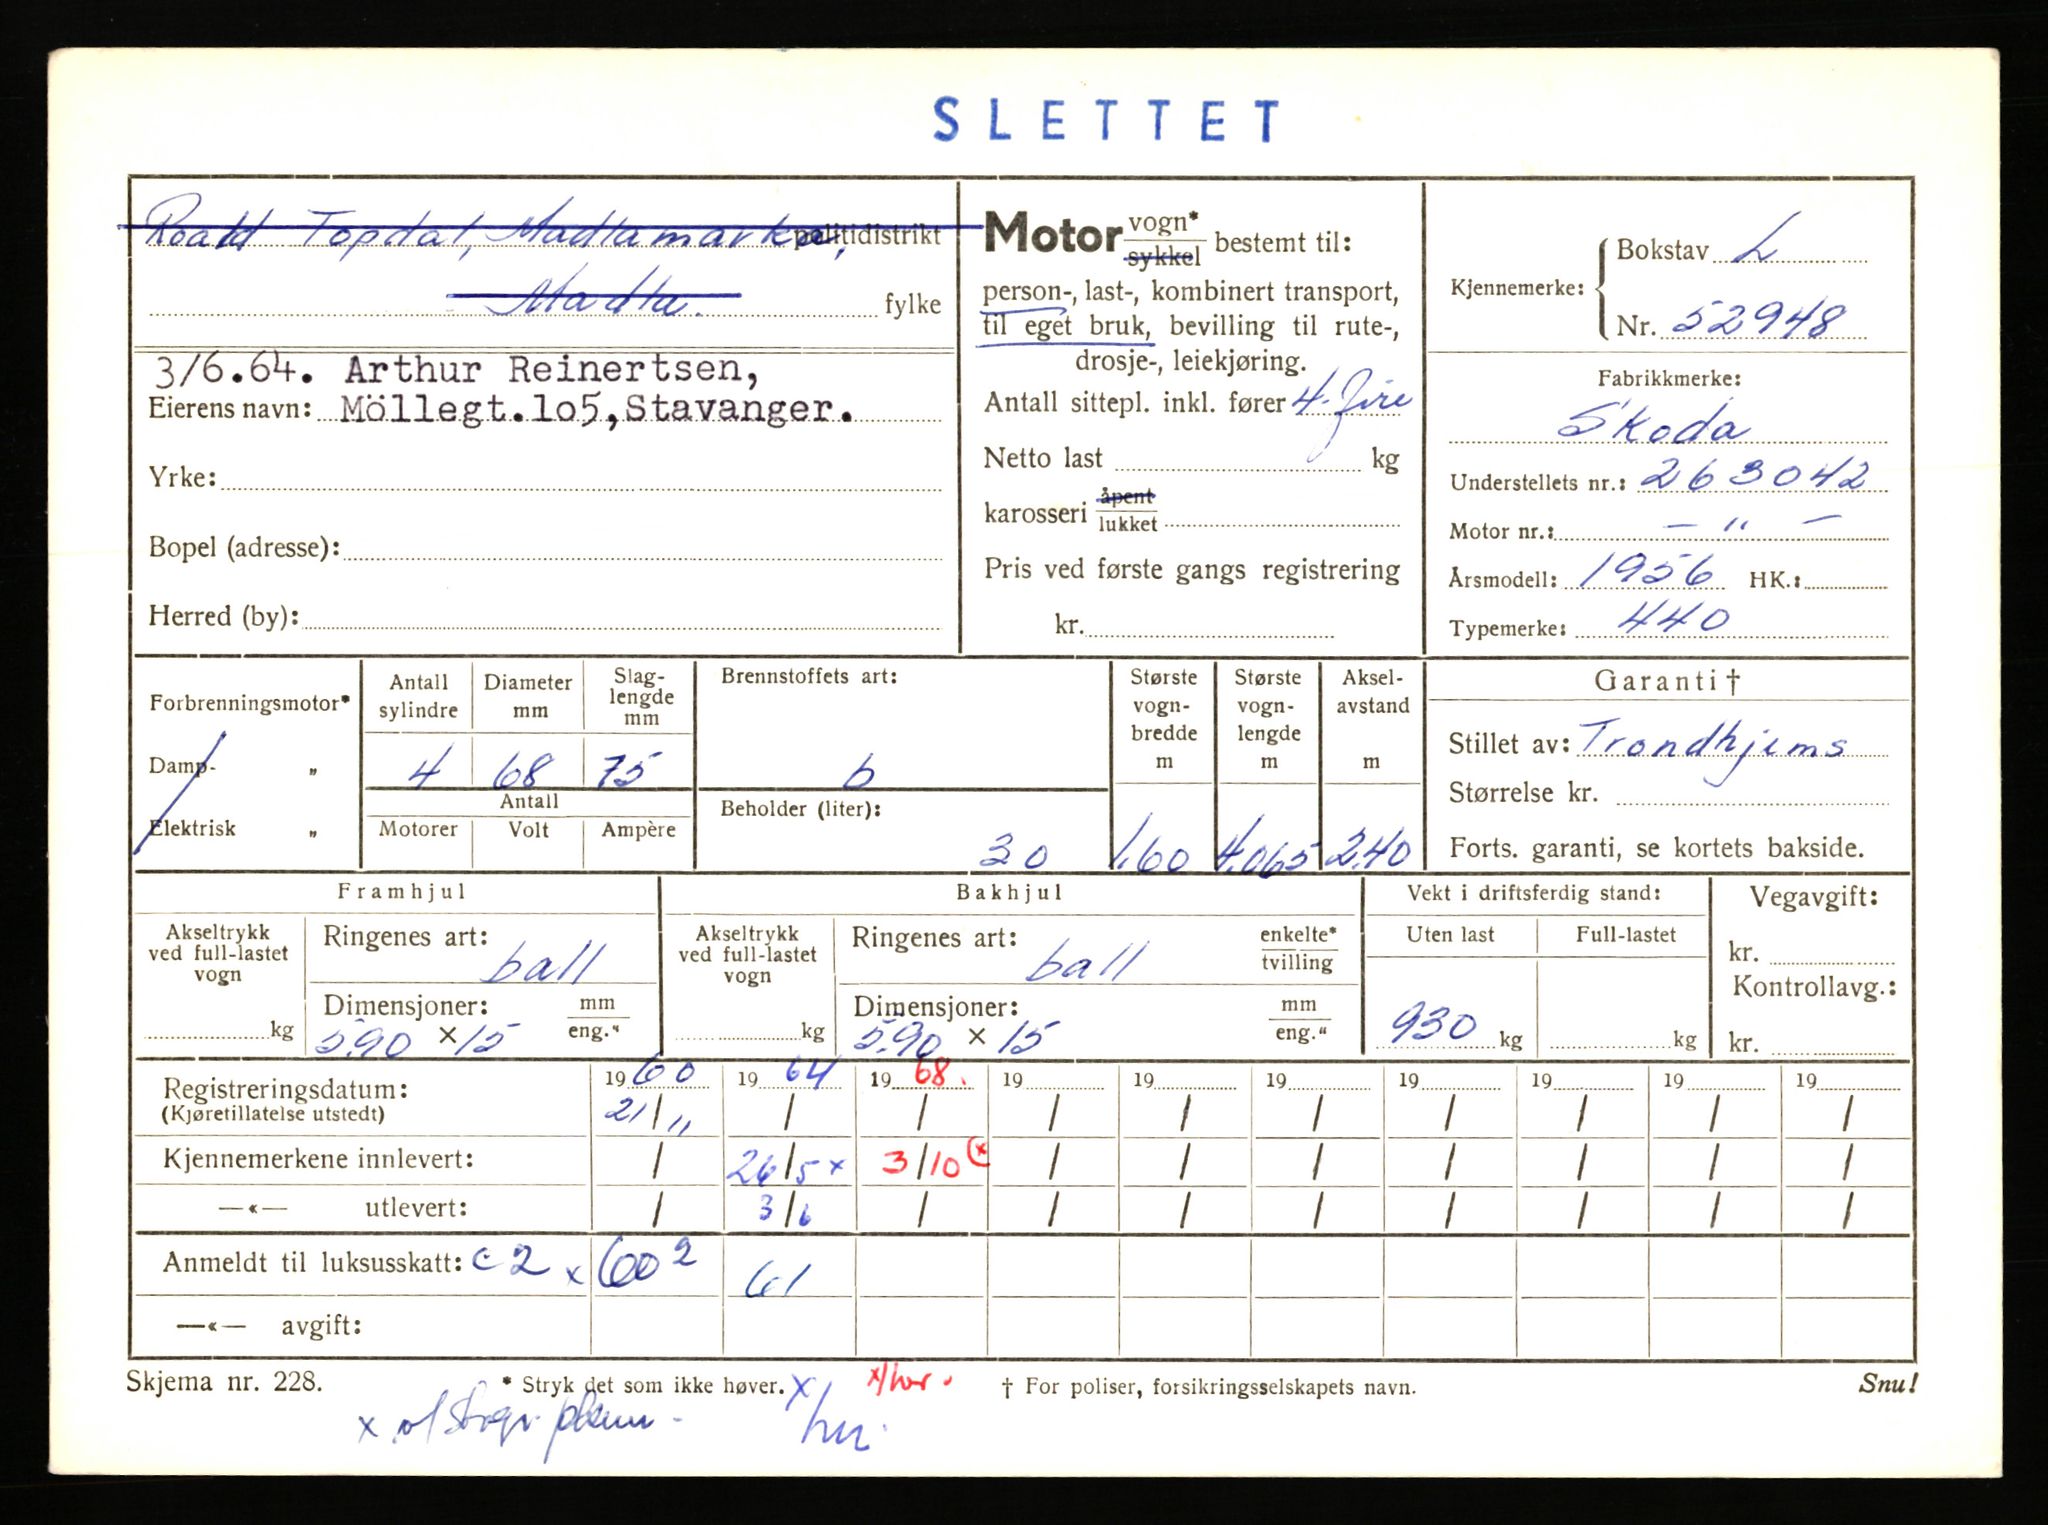 SLETTET
Roald Topdal, Madlamarka, politidistrikt
Madla. fylke
3/6.64. Arthur Reinertsen,
Eierens navn: Möllegt.lo5, Stavanger.
Yrke:
Bopel (adresse):
Herred (by):
Motor vogn* sykkel bestemt til:
person-, last-, kombinert transport,
til eget bruk, bevilling til rute-,
drosje-, leiekjøring.
Antall sittepl. inkl. fører 4. fire
Netto last kg
karosseri åpent lukket
Pris ved første gangs registrering
kr.
Kjennemerke: Bokstav L
Nr. 52948
Fabrikkmerke:
Skoda
Understellets nr.: 263042
Motor nr.: — " —
Årsmodell: 1956 HK.:
Typemerke: 440
Forbrenningsmotor*
Damp- „
Elektrisk „
Antall sylindre
4
Diameter mm
68
Slag-lengde mm
75
Antall
Motorer Volt Ampère
Brennstoffets art:
b
Beholder (liter):
30
Største vogn-bredde m
1.60
Største vogn-lengde m
4.065
Aksel-avstand m
2.40
Garanti †
Stillet av: Trondhjems
Størrelse kr.
Forts. garanti, se kortets bakside.
Framhjul
Akseltrykk ved full-lastet vogn
kg
Ringenes art:
ball
Dimensjoner: mm eng."
5.90 × 15
Bakhjul
Akseltrykk ved full-lastet vogn
kg
Ringenes art: enkelte* tvilling
ball
Dimensjoner: mm eng."
5.90 × 15
Vekt i driftsferdig stand:
Uten last Full-lastet
930 kg kg
Vegavgift:
kr.
Kontrollavg.:
kr.
Registreringsdatum: 1960 1964 1968. 19 19 19 19 19 19 19
(Kjøretillatelse utstedt) 21/11 / / / / / / / / /
Kjennemerkene innlevert: / 26/5 x 3/10 (x / / / / / / /
—«— utlevert: / 3/6 / / / / / / / /
Anmeldt til luksusskatt: c 2 x 60 2 61
—«— avgift:
Skjema nr. 228. * Stryk det som ikke høver. x/ x/ † For poliser, forsikringsselskapets navn. Snu!
x